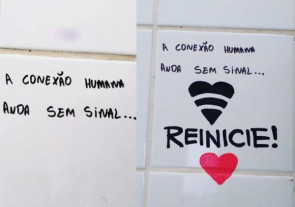 A CONEXÃO HUMANA
ANDA SEM SINAL...
A CONEXÃO HUMANA
ANDA SEM SINAL...
REINICIE!